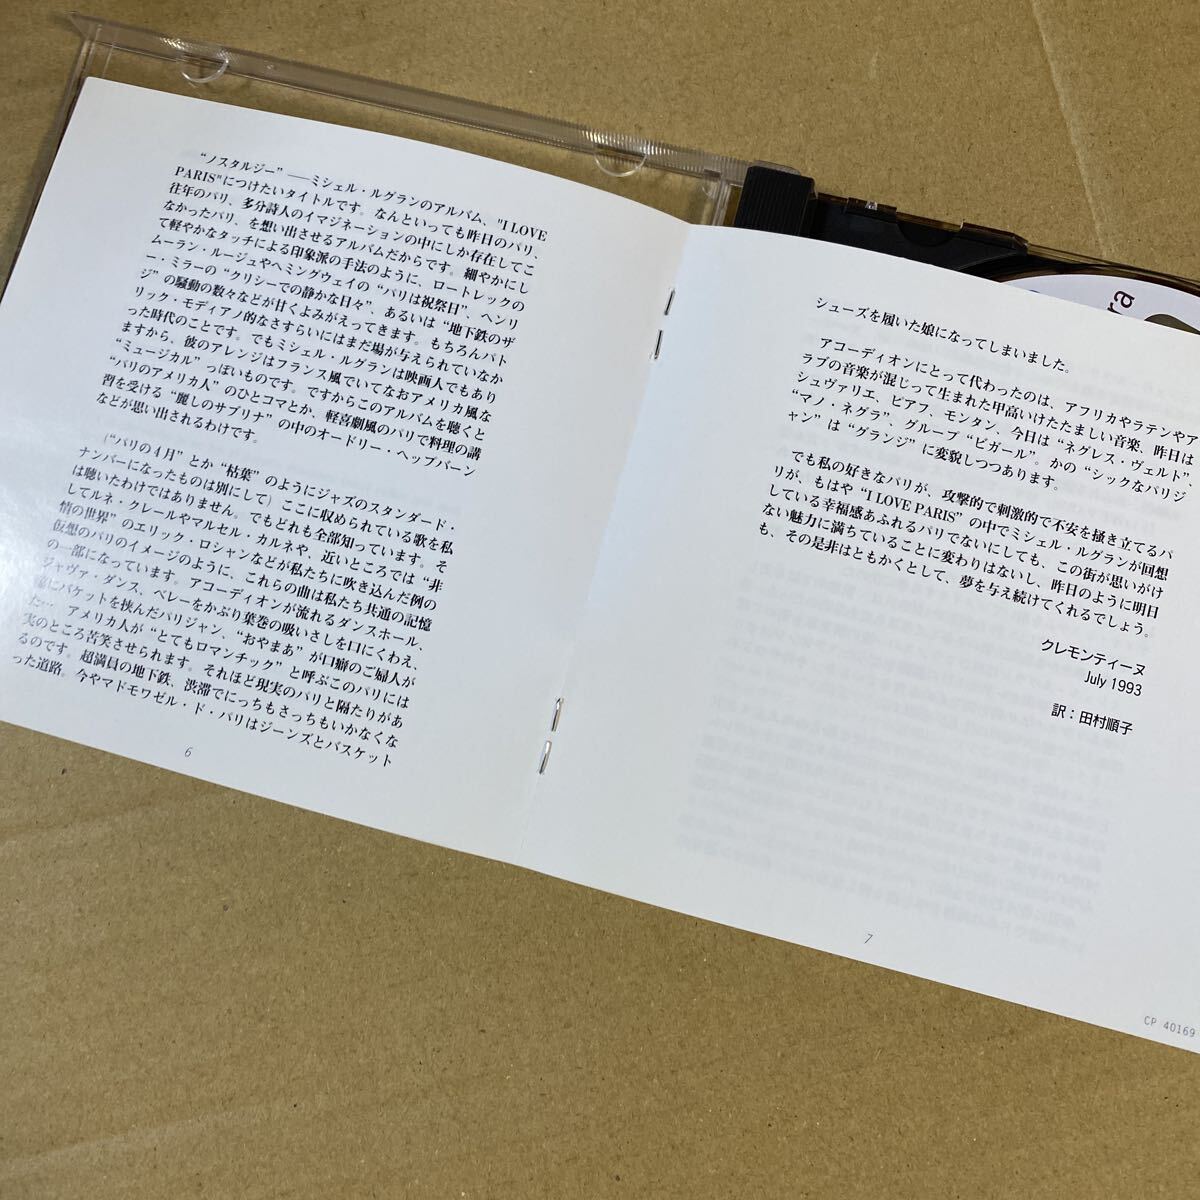 “ノスタルジー”――ミシェル・ルグランのアルバム、"I LOVE
PARIS"につけたいタイトルです。なんといっても昨日のパリ、
往年のパリ、多分詩人のイマジネーションの中にしか存在してこ
なかったパリ、を想い出させるアルバムだからです。細やかにし
て軽やかなタッチによる印象派の手法のように、ロートレックの
ムーラン・ルージュやヘミングウェイの“パリは祝祭日”、ヘンリ
ー・ミラーの“クリシーでの静かな日々”、あるいは“地下鉄のザ
ジ”の騒動の数々などが甘くよみがえってきます。もちろんパト
リック・モディアノ的なさすらいにはまだ場が与えられていなか
った時代のことです。でもミシェル・ルグランは映画人でもあり
ますから、彼のアレンジはフランス風でいてなおアメリカ風な
“ミュージカル”っぽいものです。ですからこのアルバムを聴くと
“パリのアメリカ人”のひとコマとか、軽喜劇風のパリで料理の講
習を受ける“麗しのサブリナ”の中のオードリー・ヘップバーン
などが思い出されるわけです。
(“パリの4月”とか“枯葉”のようにジャズのスタンダード・
ナンバーになったものは別にして）ここに収められている歌を私
は聴いたわけではありません。でもどれも全部知っています。そ
してルネ・クレールやマルセル・カルネや、近いところでは“非
情の世界”のエリック・ロシャンなどが私たちに吹き込んだ例の
仮想のパリのイメージのように、これらの曲は私たち共通の記憶
の一部になっています。アコーディオンが流れるダンスホール、
ジャヴァ・ダンス、ベレーをかぶり葉巻の吸いさしを口にくわえ、
脇にバケットを挟んだパリジャン、“おやまあ”が口癖のご婦人が
た… アメリカ人が“とてもロマンチック”と呼ぶこのパリには
実のところ苦笑させられます。それほど現実のパリと隔たりがあ
るのです。超満員の地下鉄、渋滞でにっちもさっちもいかなくな
った道路。今やマドモワゼル・ド・パリはジーンズとバスケット
6
シューズを履いた娘になってしまいました。
アコーディオンにとって代わったのは、アフリカやラテンやア
ラブの音楽が混じって生まれた甲高いけたたましい音楽、昨日は
シュヴァリエ、ピアフ、モンタン、今日は“ネグレス・ヴェルト”、
“マノ・ネグラ”、グループ“ピガール”。かの“シックなパリジ
ャン”は“グランジ”に変貌しつつあります。
でも私の好きなパリが、攻撃的で刺激的で不安を掻き立てるパ
リが、もはや“I LOVE PARIS”の中でミシェル・ルグランが回想
している幸福感あふれるパリでないにしても、この街が思いがけ
ない魅力に満ちていることに変わりはないし、昨日のように明日
も、その是非はともかくとして、夢を与え続けてくれるでしょう。
クレモンティーヌ
July 1993
訳：田村順子
7
CP 40169